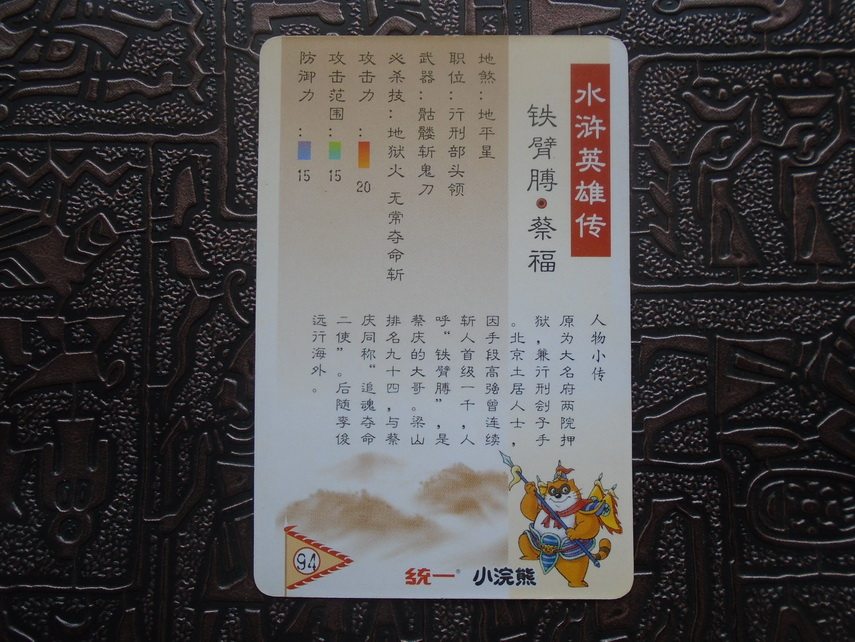 水浒英雄传
铁臂膊·蔡福
地煞：地平星
职位：行刑部头领
武器：骷髅斩鬼刀
必杀技：地狱火 无常夺命斩
攻击力：20
攻击范围：15
防御力：15
人物小传
原为大名府两院押
狱，兼行刑刽子手
。北京土居人士，
因手段高强曾连续
斩人首级一千，人
呼“铁臂膊”，是
蔡庆的大哥。梁山
排名九十四，与蔡
庆同称“追魂夺命
二使”。后随李俊
远行海外。
94
统一® 小浣熊